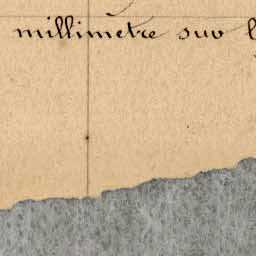 millimetre sur l